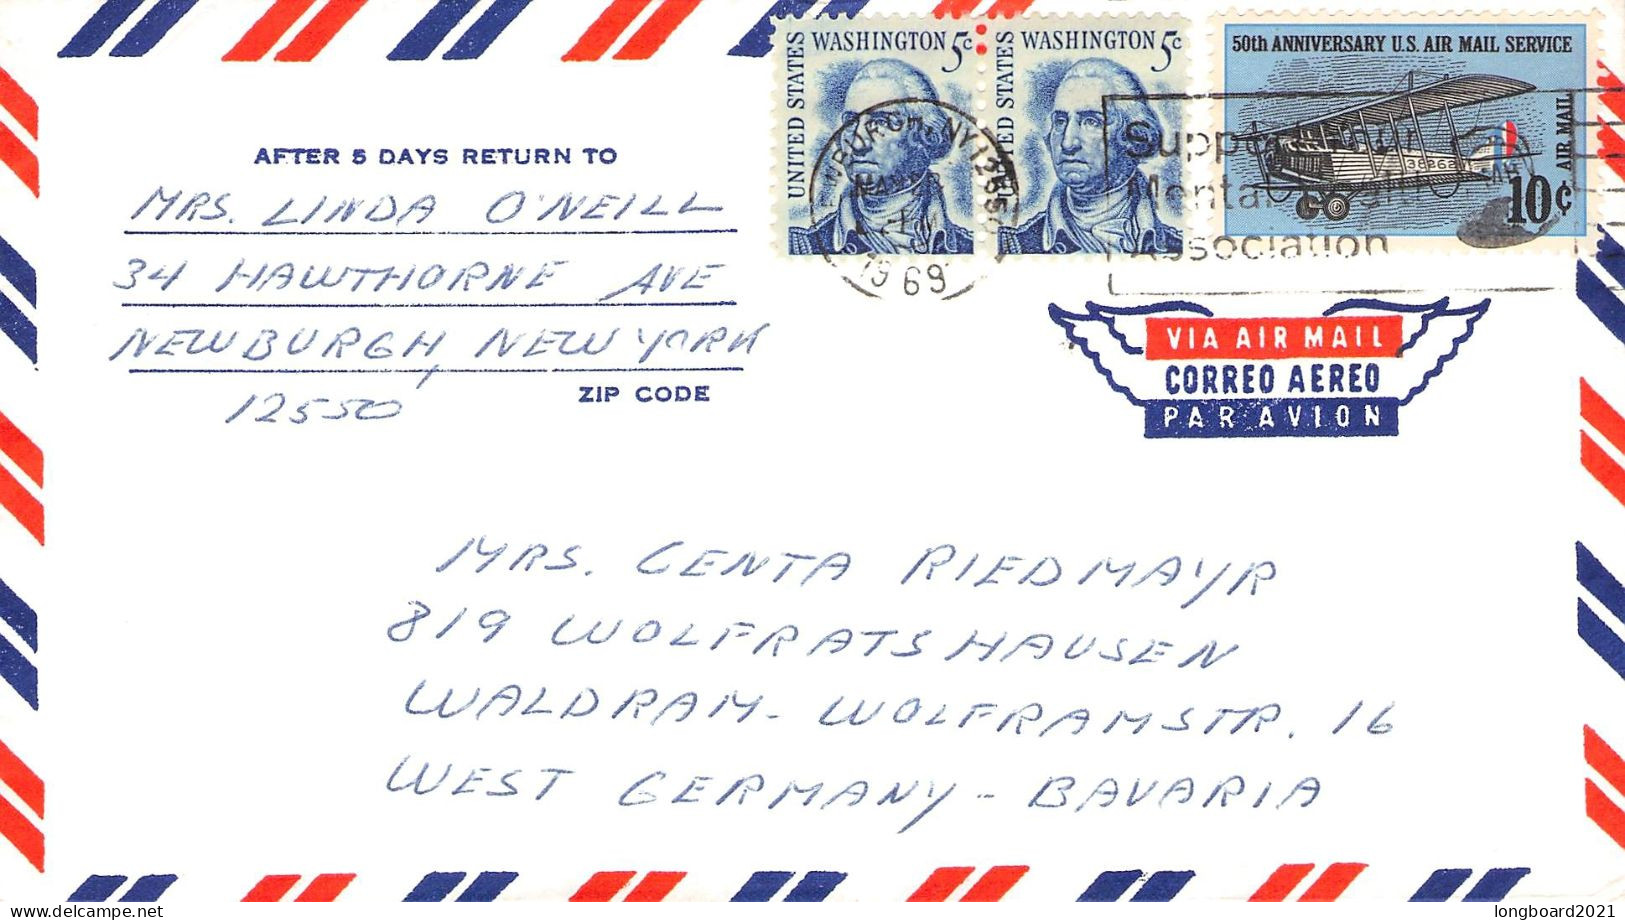 AFTER 5 DAYS RETURN TO
MRS. LINDA O'NEILL
34 HAWTHORNE AVE
NEWBURGH, NEW YORK
12550
ZIP CODE
UNITED STATES
WASHINGTON 5c
WASHINGTON 5c
50th ANNIVERSARY U.S. AIR MAIL SERVICE
38262
AIR MAIL
10c
BURGH, NY
1969
Mental
Association
VIA AIR MAIL
CORREO AEREO
PAR AVION
MRS. CENTA RIEDMAYR
819 WOLFRATSHAUSEN
WALDRAM - WOLFRAMSTR. 16
WEST GERMANY - BAVARIA
delcampe.net
longboard2021